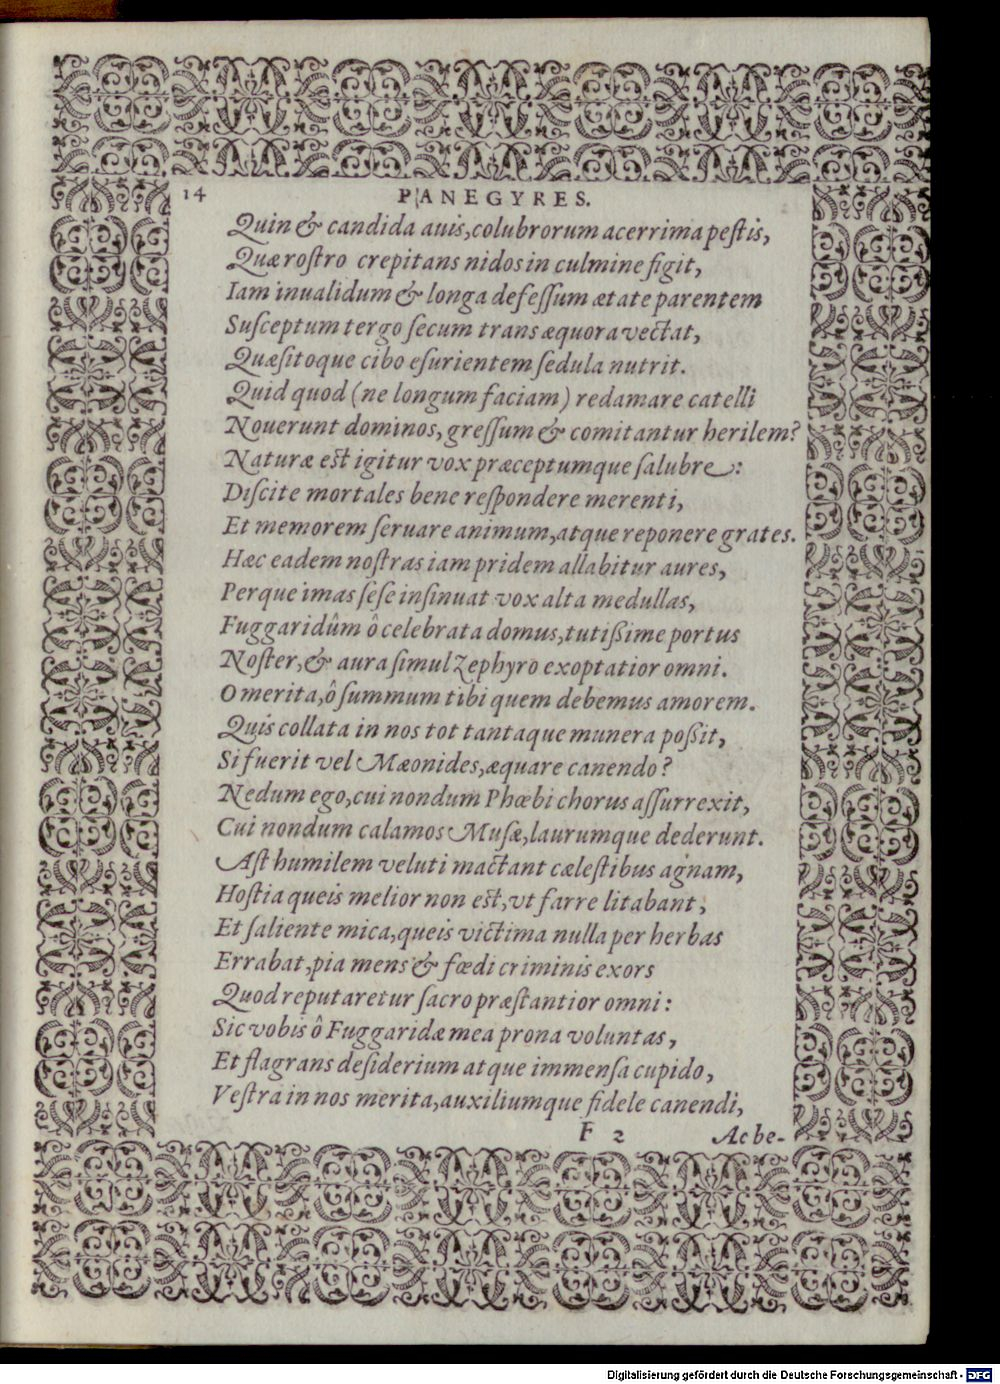 14 PANEGYRES.
Quin & candida auis, colubrorum acerrima pestis,
Quæ rostro crepitans nidos in culmine figit,
Iam inualidum & longa defessum ætate parentem
Susceptum tergo secum trans æquora vectat,
Quæsitoque cibo esurientem sedula nutrit.
Quid quod (ne longum faciam) redamare catelli
Nouerunt dominos, gressum & comitantur herilem?
Naturæ est igitur vox præceptumque salubre:
Discite mortales bene respondere merenti,
Et memorem seruare animum, atque reponere grates.
Hæc eadem nostras iam pridem allabitur aures,
Perque imas sese insinuat vox alta medullas,
Fuggaridûm ô celebrata domus, tutißime portus
Noster, & aura simul Zephyro exoptatior omni.
O merita, ô summum tibi quem debemus amorem.
Quis collata in nos tot tantaque munera poßit,
Si fuerit vel Mæonides, æquare canendo?
Nedum ego, cui nondum Phœbi chorus assurrexit,
Cui nondum calamos Musæ, laurumque dederunt.
Ast humilem veluti mactant cælestibus agnam,
Hostia queis melior non est, vt farre litabant,
Et saliente mica, queis victima nulla per herbas
Errabat, pia mens & fœdi criminis exors
Quod reputaretur sacro præstantior omni:
Sic vobis ô Fuggaridæ mea prona voluntas,
Et flagrans desiderium atque immensa cupido,
Vestra in nos merita, auxiliumque fidele canendi,
F 2 Ac be-
Digitalisierung gefördert durch die Deutsche Forschungsgemeinschaft - DFG